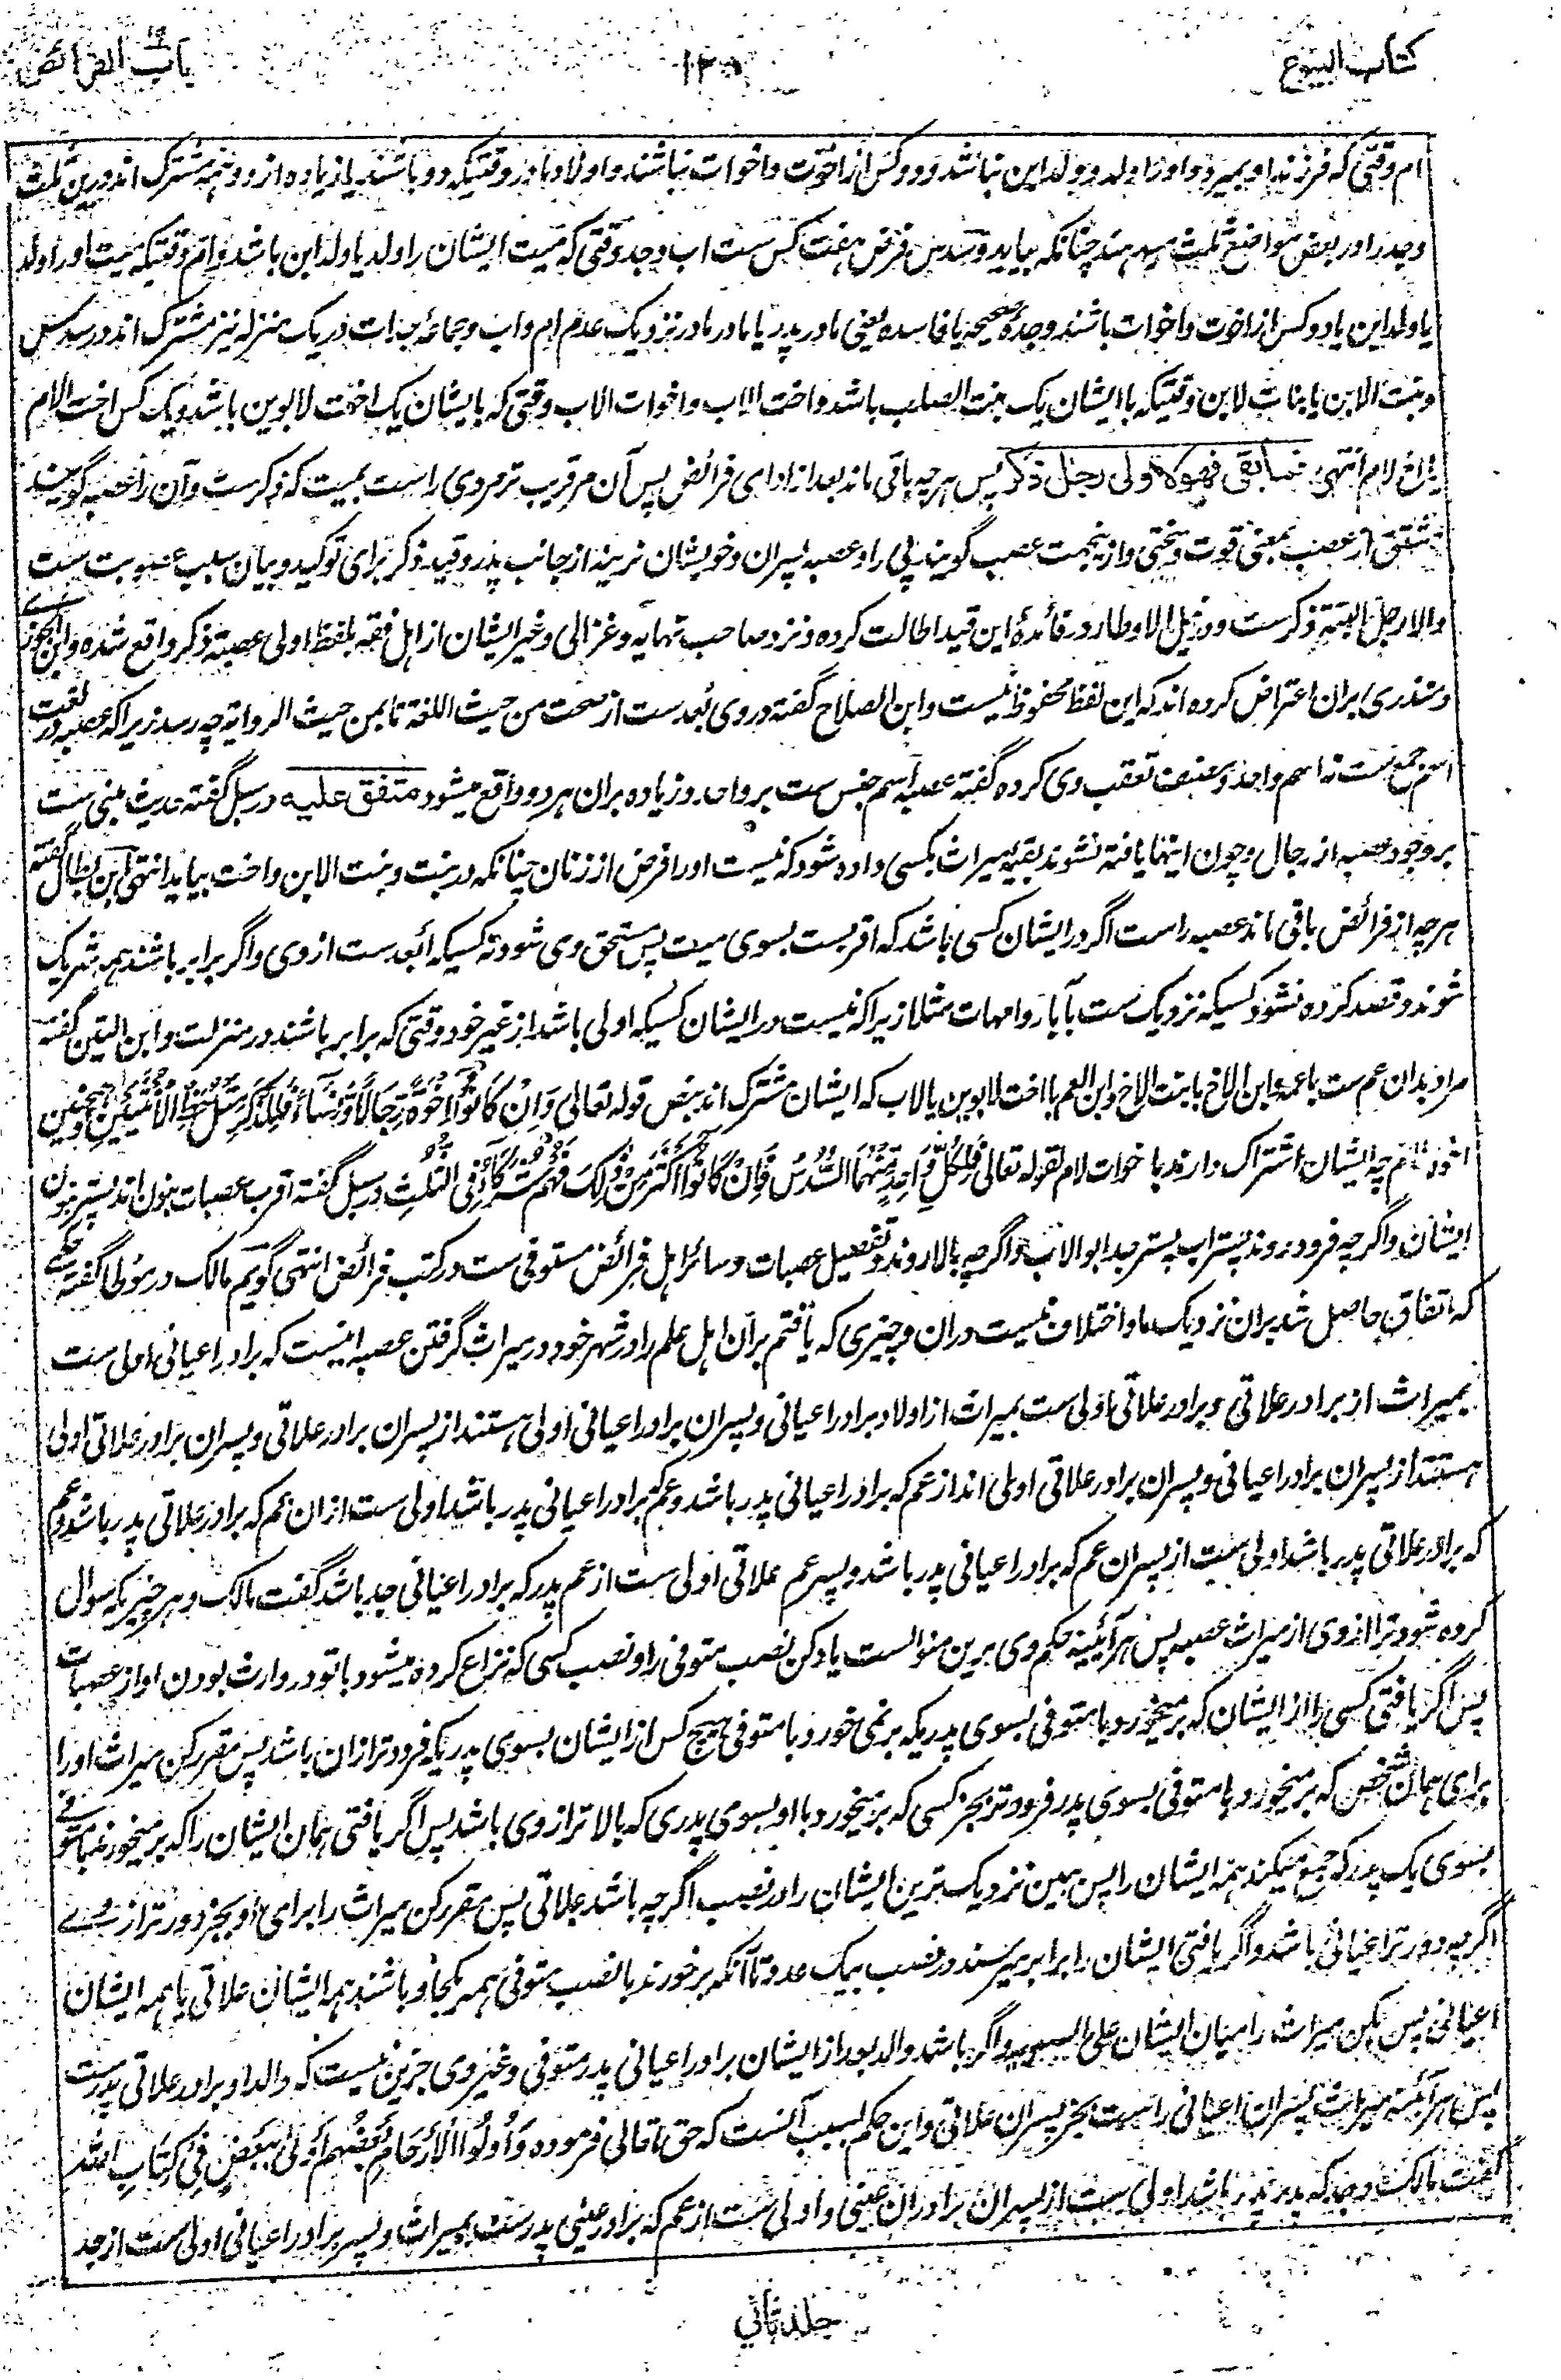 کتاب البیوع
باب الفرائض
ام وقتی که فرزند او بمیرد و او را ولد و ولد ابن نباشد و دو کس از اخوت و اخوات نباشند و اولاد مادر وقتیکه دو باشند یا زیاده از دو همه مشترک اند درین ثلث
و جد را در بعض مواضع ثلث میدهند چنانکه بیاید و سدس فرض هفت کس ست اب و جد وقتی که میت ایشان را ولد یا ولد ابن باشد و ام وقتیکه میت او را ولد
یا ولد ابن یا دو کس از اخوت و اخوات باشند و جدهٔ صحیحه یا فاسده یعنی مادر پدر یا مادر مادر نزدیک عدم ام و اب و جماعهٔ جدات در یک منزله نیز مشترک اند در سدس
و بنت الابن یا بنات لابن وقتیکه با ایشان یک بنت الصلب باشد و اخت الاب و اخوات الاب وقتی که با یشان یک اخت لابوین باشد و یک کس اخت الام
یا اخ لام انتهی فما بقی فهو لاولی رجل ذکر پس هر چه باقی ماند بعد از ادای فرائض پس آن مر قریب تر مردی راست بمیت که ذکرست و آن را عصبه گویند
مشتق از عصب بمعنی قوت و سختی و ازینجهت عصب گویند پی را و عصبه پسران و خویشان نرینه از جانب پدر و قید ذکر برای توکید و بیان سبب عصوبت ست
و الا رجل البته ذکرست و در نیل الاوطار در فائدهٔ این قید اطالت کرده و نزد صاحب نهایه و غزالی و غیر ایشان از اهل فقه بلفظ اولی عصبة ذکر واقع شده و ابن الجوزے
و منذری بران اعتراض کرده اند که این لفظ محفوظ نیست و ابن الصلاح گفته در وی بُعدست از صحت من حیث اللغة تا بمن حیث الروایة چه رسد زیرا که عصبه در لغت
اسم جمع ست نه اسم واحد و مصنف تعقب وی کرده گفته عصبه اسم جنس ست بر واحد و زیاده بران هر دو واقع میشود متفق علیه در سبل گفته حدیث مبنی ست
بر وجود عصبه از رجال و چون اینها یافته نشوند بقیهٔ میراث بکسی داده شود که نیست او را فرض از زنان چنانکه در بنت و بنت الابن و اخت بیاید انتهی ابن بطال گفته
هر چه از فرائض باقی ماند عصبه راست اگر در ایشان کسی باشد که اقربست بسوی میت پس مستحق وی شود نه کسیکه ابعد ست از وی و اگر برابر باشند همه شریک
شوند و قصد کرده نشود کسیکه نزدیک ست بآباء و امهات مثلا زیرا که نیست در ایشان کسیکه اولی باشد از غیر خود وقتی که برابر باشند در منزلت و ابن التین گفته
مراد بدان عم ست با عمه و ابن الاخ با بنت الاخ و ابن العم با اخت لابوین یا لاب که ایشان مشترک اند بنص قوله تعالی وَاِنْ كَانُوْٓا اِخْوَةً رِّجَالًا وَّنِسَآءً فَلِلذَّكَرِ مِثْلُ حَظِّ الْاُنْثَيَيْنِ و همچنین
اخوه لام چه ایشان اشتراک دارند با خوات لام لقوله تعالی فَلِكُلِّ وَاحِدٍ مِّنْهُمَا السُّدُسُ فَاِنْ كَانُوْٓا اَكْثَرَ مِنْ ذٰلِكَ فَهُمْ شُرَكَآءُ فِى الثُّلُثِ در سبل گفته اقرب عصبات بنون اند پستر بنون
ایشان و اگر چه فرود روند پستر اب پستر جد ابو الاب و اگر چه بالا روند و تفصیل عصبات و سائر اهل فرائض مستوفی ست در کتب فرائض انتهی گویم مالک در موطا گفته حکمے
که اتفاق حاصل شد بران نزدیک ما و اختلاف نیست دران و چیزی که یافتم بران اهل علم را در شهر خود در میراث گرفتن عصبه اینست که برادر اعیانی اولی ست
بمیراث از برادر علاتی و برادر علاتی اولی ست بمیراث از اولاد برادر اعیانی و پسران برادر اعیانی اولی هستند از پسران برادر علاتی و پسران برادر علاتی اولی
هستند از پسران برادر اعیانی و پسران برادر علاتی اولی اند از عم که برادر اعیانی پدر باشد و عم که برادر اعیانی پدر باشد اولی ست از ان عم که برادر علاتی پدر باشد و عم
که برادر علاتی پدر باشد اولی ست از پسران عم که برادر اعیانی پدر باشد و پسر عم علاتی اولی ست از عم پدر که برادر اعیانی جد باشد گفت مالک و هر چیزیکه سوال
کرده شود ترا از وی از میراث عصبه پس هر آئینه حکم وی برین منوالست یاد کن نصب متوفی را و نصب کسی که نزاع کرده میشود با تو در وارث بودن او از عصبات
پس اگر یافتی کسی را از ایشان که بر میخورد با متوفی بسوی پدریکه بر نمی خورد با متوفی هیچ کس از ایشان بسوی پدریکه فرود تر ازان باشد پس مقرر کن میراث او را
برای همان شخص که بر میخورد با متوفی بسوی پدر فرودتر بجز کسی که بر میخورد با او بسوی پدری که بالا تر از وی باشد پس اگر یافتی همان ایشان را که بر میخورند با متوفے
بسوی یک پدر که جمع میکند همه ایشان را پس ببین نزدیک ترین ایشان را در نصب اگر چه باشد علاتی پس مقرر کن میراث را برای او بجز دور تر از وے
اگر چه دور تر اعیانی باشد و اگر یافتی ایشان را برابر میرسند در نصب بیک عدد تا آنکه بر خورند با نصب متوفی همه یکجا و باشند همه ایشان علاتی یا همه ایشان
اعیانی پس بکن میراث را میان ایشان علی السویه و اگر باشد والد بعض از ایشان برادر اعیانی پدر متوفی و غیر وی جز این نیست که والد او برادر علاتی پدرست
پس هر آئینه میراث پسران اعیانی راست بجز پسران علاتی و این حکم بسبب آنست که حق تعالی فرموده وَاُولُوا الْاَرْحَامِ بَعْضُهُمْ اَوْلٰى بِبَعْضٍ فِىْ كِتَابِ اللّٰهِ
گفت مالک و جد که پدر پدر باشد اولی ست از پسران برادران عینی و اولی ست از عم که برادر عینی پدرست بمیراث و پسر برادر اعیانی اولی ست از جد
جلد ثانی